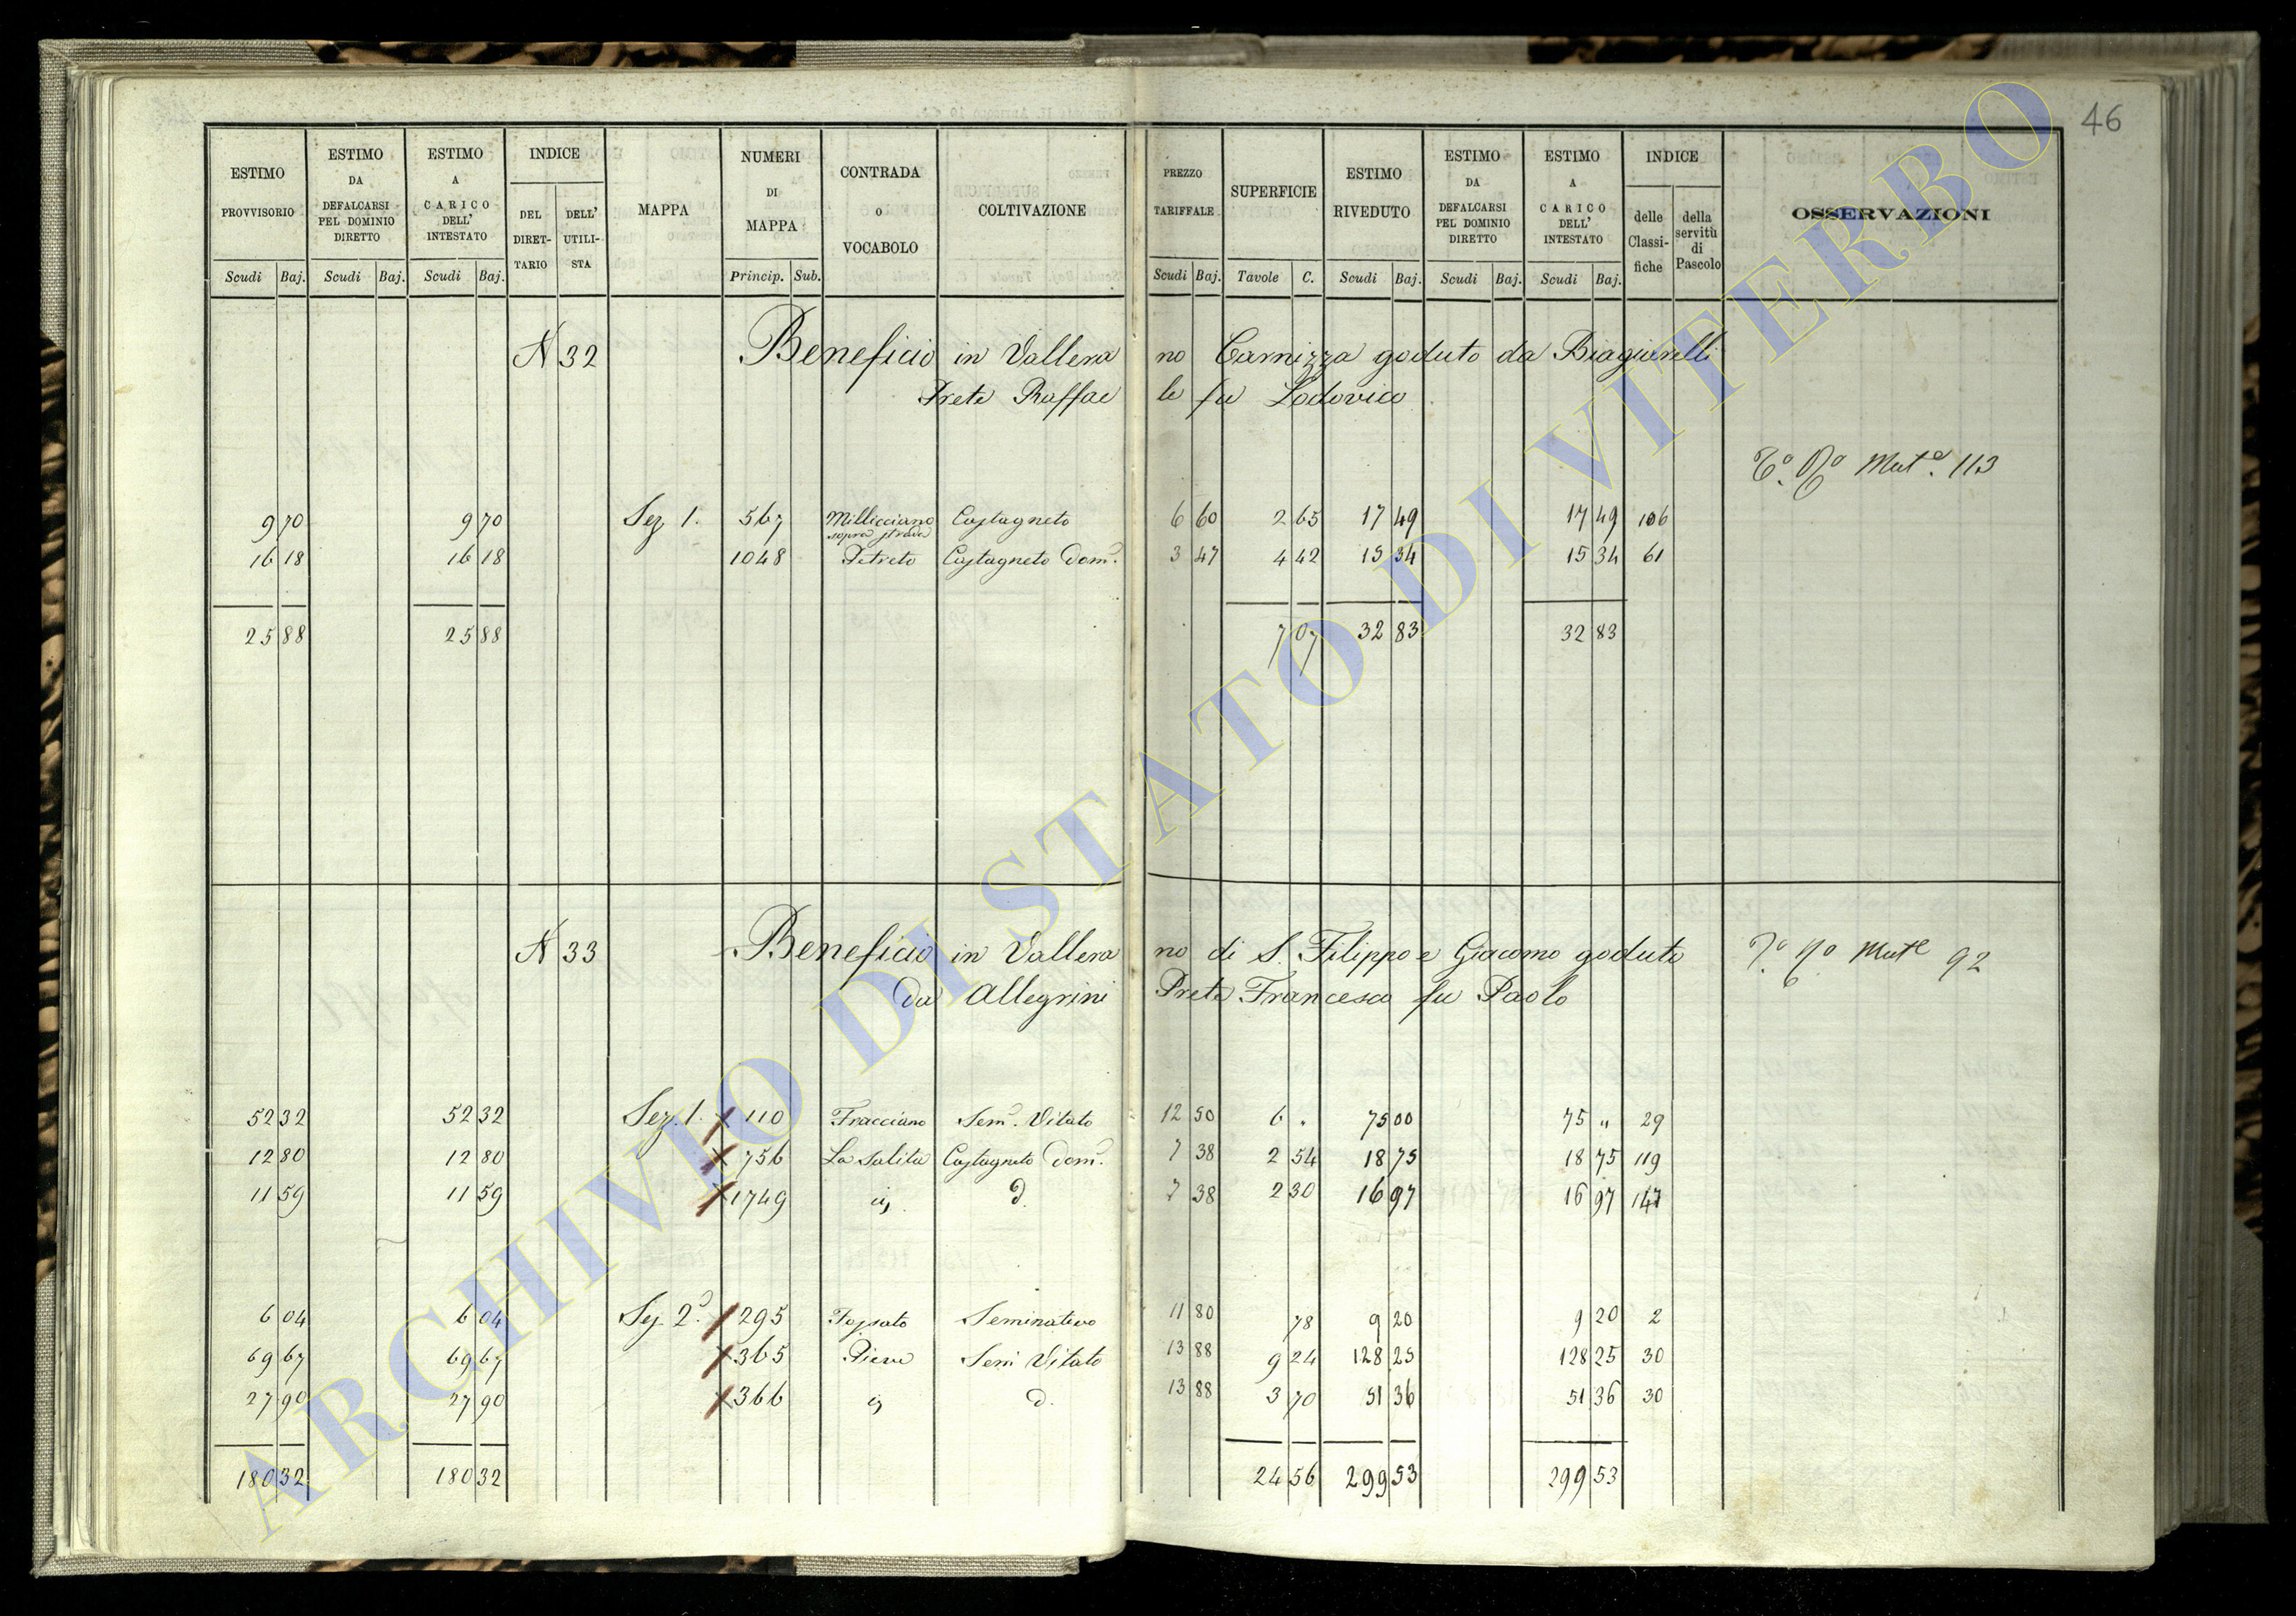 46
ESTIMO PROVVISORIO
ESTIMO DA DEFALCARSI PEL DOMINIO DIRETTO
ESTIMO A CARICO DELL' INTESTATO
INDICE
DEL DIRET-TARIO
DELL' UTILI-STA
MAPPA
NUMERI DI MAPPA
CONTRADA O VOCABOLO
COLTIVAZIONE
PREZZO TARIFFALE
SUPERFICIE
ESTIMO RIVEDUTO
ESTIMO DA DEFALCARSI PEL DOMINIO DIRETTO
ESTIMO A CARICO DELL' INTESTATO
INDICE
delle Classi-fiche
della servitù di Pascolo
OSSERVAZIONI
Scudi Baj. Scudi Baj. Scudi Baj. Princip. Sub. Scudi Baj. Tavole C. Scudi Baj. Scudi Baj. Scudi Baj.
N 32 Beneficio in Vallerano Carnizza goduto da Biagiarelli
Prete Raffaele fu Lodovico
Mut. 113
9 70 9 70 Sez 1. 567 Millicciano sopra strada Castagneto 6 60 2 65 17 49 17 49 106
16 18 16 18 1048 Petreto Castagneto Dom. 3 47 4 42 15 34 15 34 61
25 88 25 88 7 07 32 83 32 83
N 33 Beneficio in Vallerano di S. Filippo e Giacomo goduto
da Allegrini Prete Francesco fu Paolo
Mut 92
52 32 52 32 Sez. 1. 110 Fracciano Sem. Vitato 12 50 6 " 75 00 75 " 29
12 80 12 80 756 La Salita Castagneto Dom. 7 38 2 54 18 75 18 75 119
11 59 11 59 1749 7 38 2 30 16 97 16 97 147
6 04 6 04 Sez 2. 295 Fossato Seminativo 11 80 78 9 20 9 20 2
69 67 69 67 365 Pieve Sem Vitato 13 88 9 24 128 25 128 25 30
27 90 27 90 366 13 88 3 70 51 36 51 36 30
180 32 180 32 24 56 299 53 299 53
ARCHIVIO DI STATO DI VITERBO